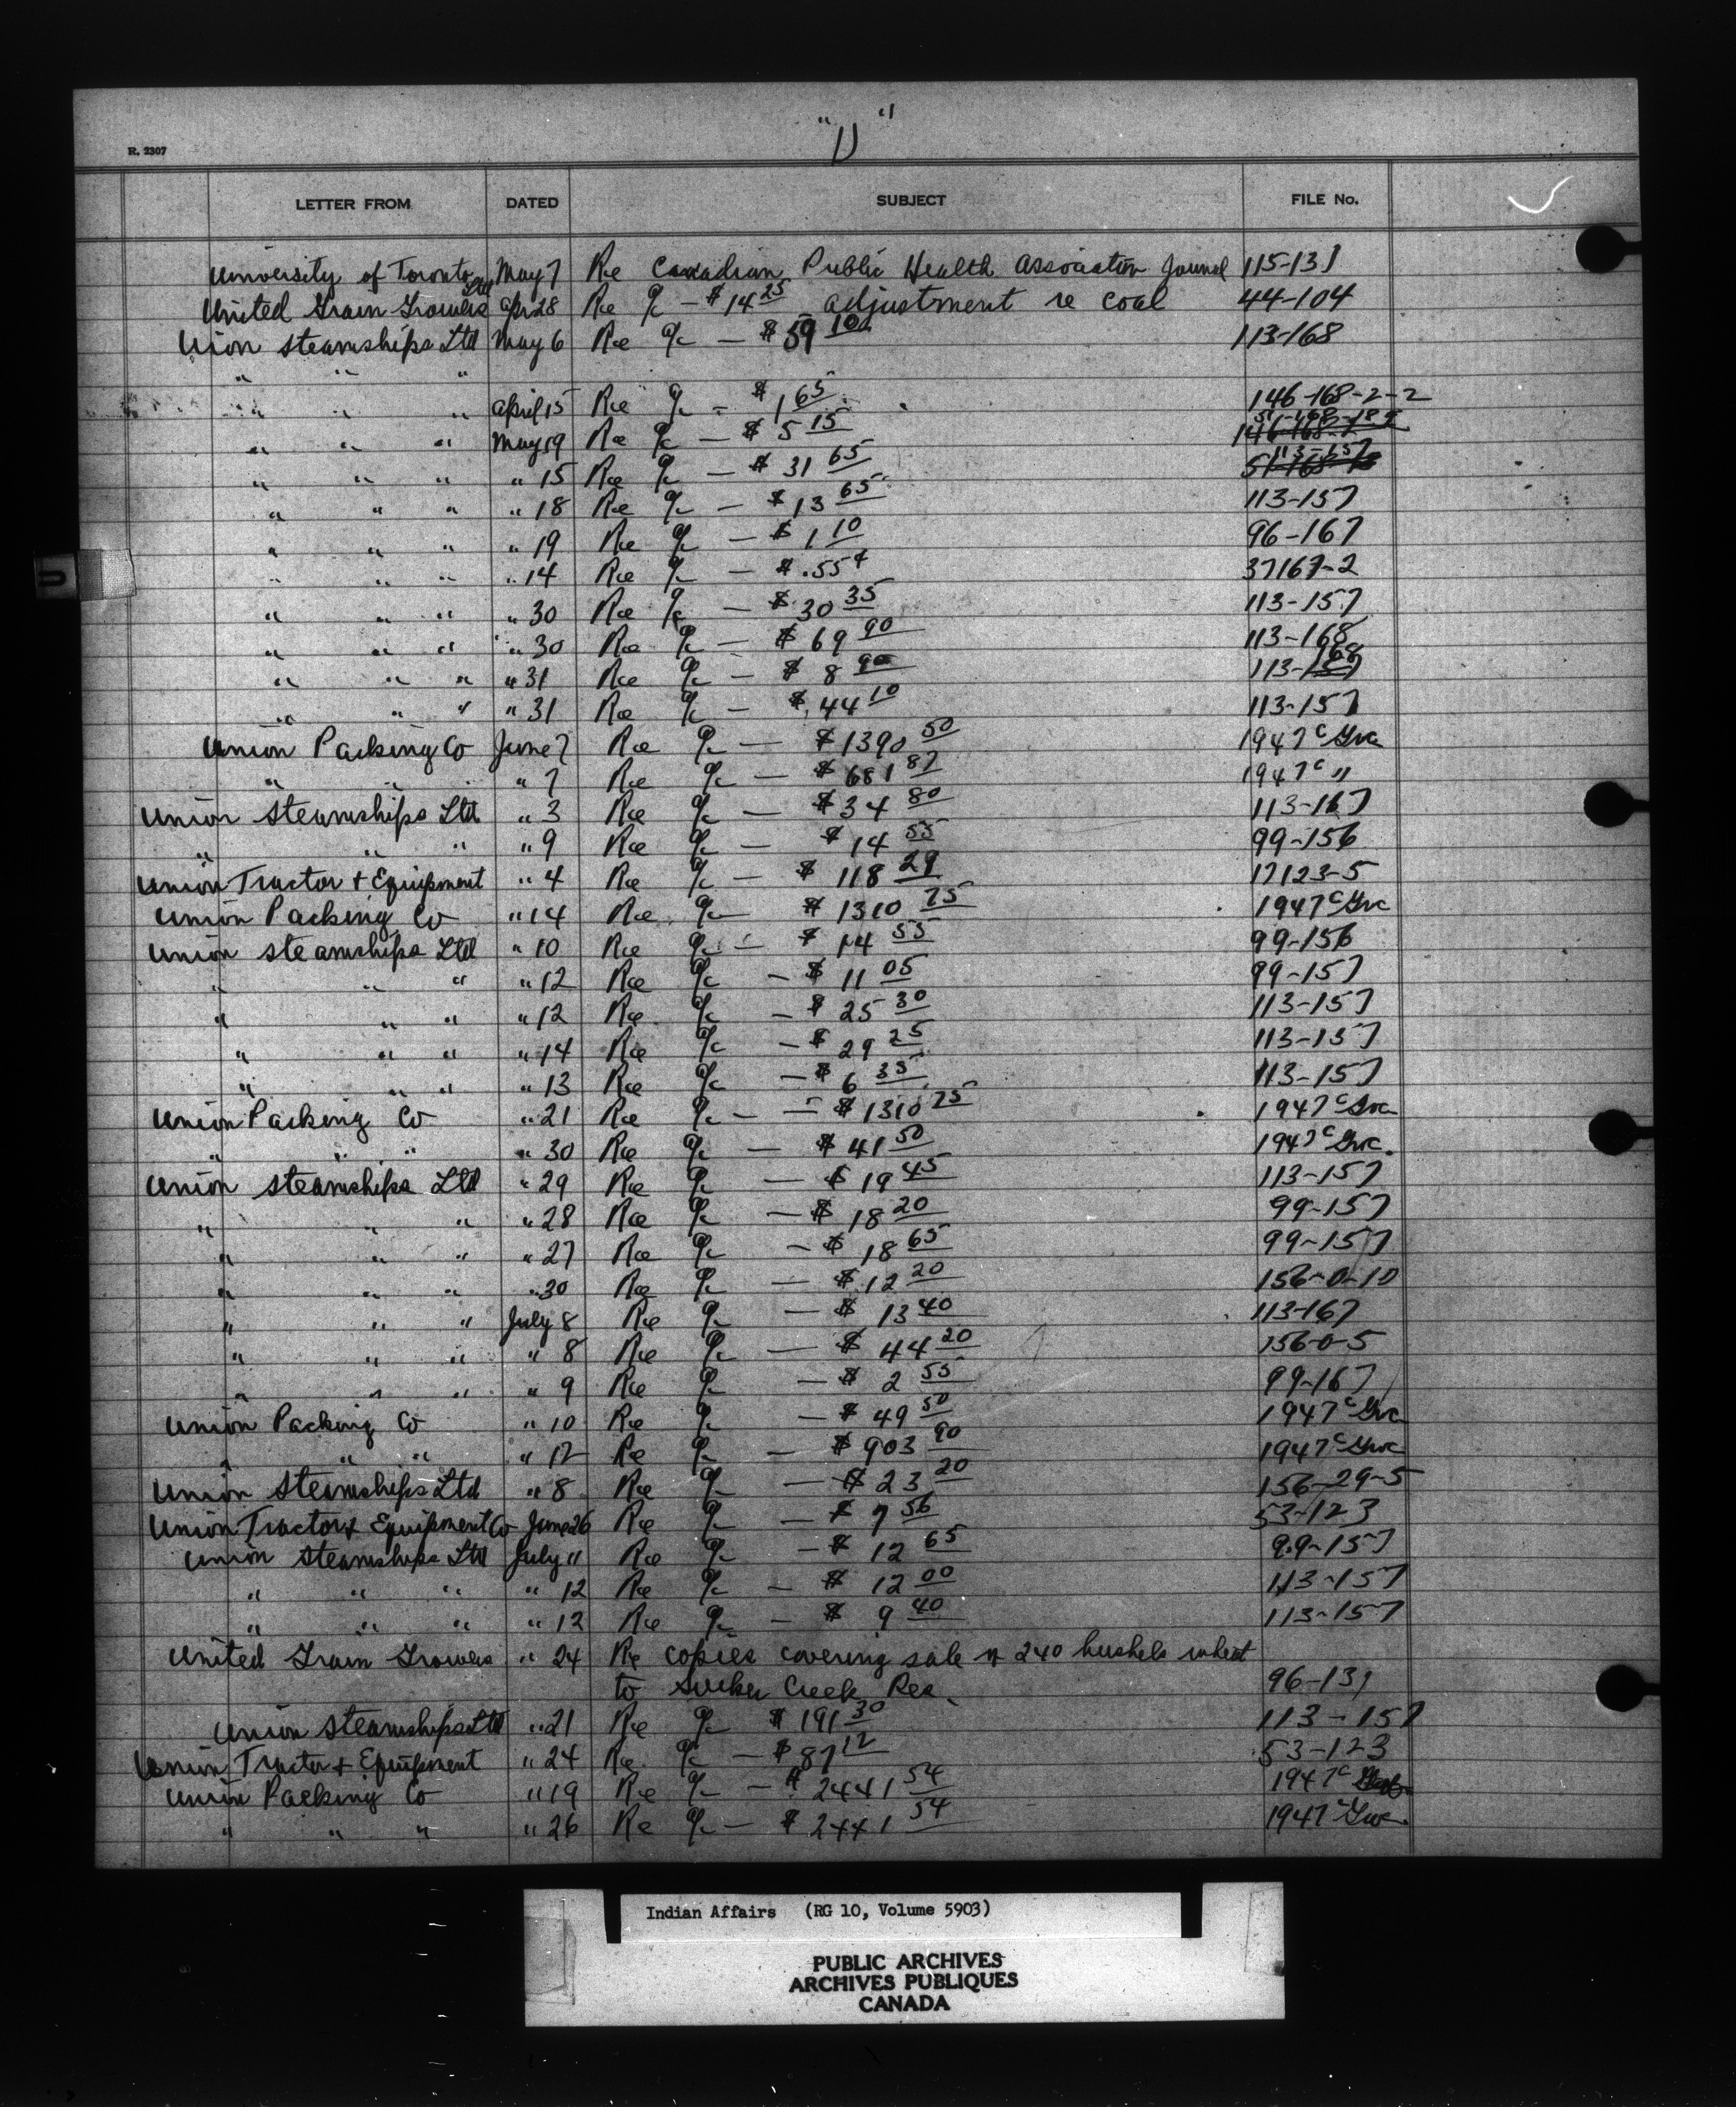 "U"
R. 2307
LETTER FROM DATED SUBJECT FILE No.
University of Toronto May 7 Re Canadian Public Health Association Journal 115-131
United Grain Growers Ltd Apr 28 Re a/c - $14 25 adjustment re coal 44-104
Union Steamships Ltd May 6 Re a/c - $59 10 113-168
" " "
" " " April 15 Re a/c - $1 65 146-168-2-2
" " " May 19 Re a/c - $5 15 51-168-18
" " " " 15 Re a/c - $31 65 113-157
" " " " 18 Re a/c - $13 65 113-157
" " " " 19 Re a/c - $1 10 96-167
" " " " 14 Re a/c - $.55¢ 37167-2
" " " " 30 Re a/c - $30 35 113-157
" " " " 30 Re a/c - $69 90 113-168
" " " " 31 Re a/c - $8 90 113-168
" " " " 31 Re a/c - $44 10 113-157
Union Packing Co June 7 Re a/c - $1390 50 1947 c Gvc
" " " 7 Re a/c - $681 87 1947 c "
Union Steamships Ltd " 3 Re a/c - $34 80 113-167
" " " " 9 Re a/c - $14 55 99-156
Union Tractor + Equipment " 4 Re a/c - $118 29 17123-5
Union Packing Co " 14 Re a/c $1310 75 1947 c Gvc
Union Steamships Ltd " 10 Re a/c - $14 55 99-156
" " " " 12 Re a/c - $11 05 99-157
" " " " 12 Re a/c - $25 30 113-157
" " " " 14 Re a/c - $29 25 113-157
" " " " 13 Re a/c - $6 35 113-157
Union Packing Co " 21 Re a/c - - $1310 75 1947 c Gvc
" " " " 30 Re a/c - $41 50 1947 c Gvc.
Union Steamships Ltd " 29 Re a/c - $19 45 113-157
" " " " 28 Re a/c - $18 20 99-157
" " " " 27 Re a/c - $18 65 99-157
" " " " 30 Re a/c - $12 20 156-0-10
" " " July 8 Re a/c - $13 40 113-167
" " " " 8 Re a/c - $44 20 156-0-5
" " " " 9 Re a/c - $2 55 99-167
Union Packing Co " 10 Re a/c - $49 50 1947 c Gvc
" " " " 12 Re a/c - $903 90 1947 c Gvc
Union Steamships Ltd " 8 Re a/c - $23 20 156-29-5
Union Tractor + Equipment Co June 26 Re a/c - $7 56 53-123
Union Steamships Ltd July 11 Re a/c - $12 65 99-157
" " " " 12 Re a/c - $12 00 113-157
" " " " 12 Re a/c - $9 40 113-157
United Grain Growers " 24 Re copies covering sale of 240 bushels wheat
to Sucker Creek Res. 96-131
Union Steamships Ltd " 21 Re a/c $191 30 113-157
Union Tractor + Equipment " 24 Re a/c - $87 12 53-123
Union Packing Co " 19 Re a/c - $2441 54 1947 c
" " " " 26 Re a/c - $2441 54 1947 c Gvc.
U
Indian Affairs (RG 10, Volume 5903)
PUBLIC ARCHIVES
ARCHIVES PUBLIQUES
CANADA